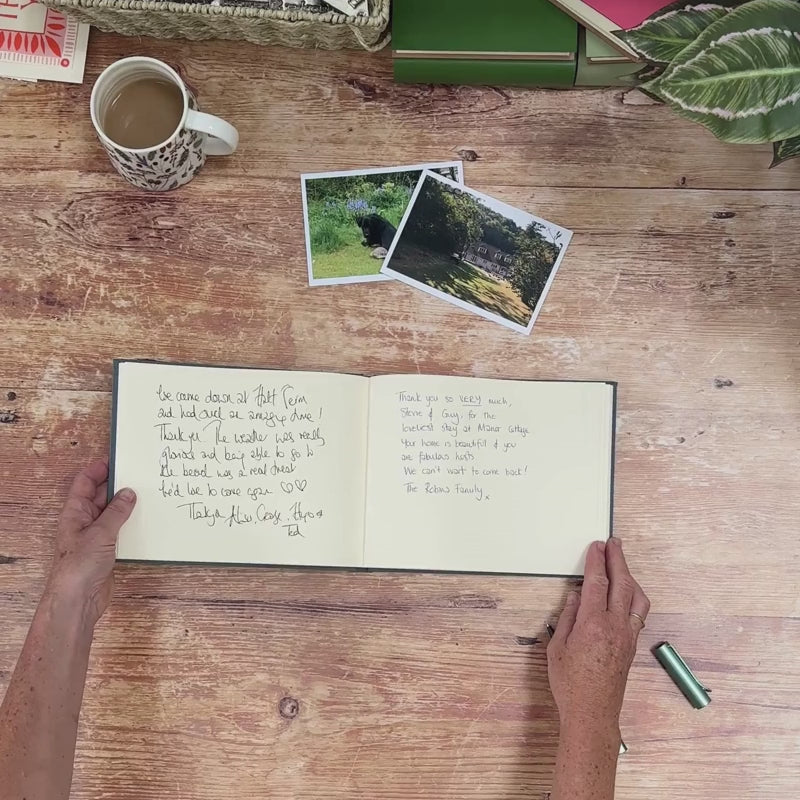 We came down at Half Term
and had such an amazing time!
Thank you. The weather was really
glorious and being able to go to
the beach was a real treat
We'd love to come again ♡♡
Thank you George,
Ted
Thank you so VERY much,
Stevie & Guy, for the
loveliest stay at Manor Cottage.
Your home is beautiful & you
are fabulous hosts.
We can't wait to come back!
The Robins Family x